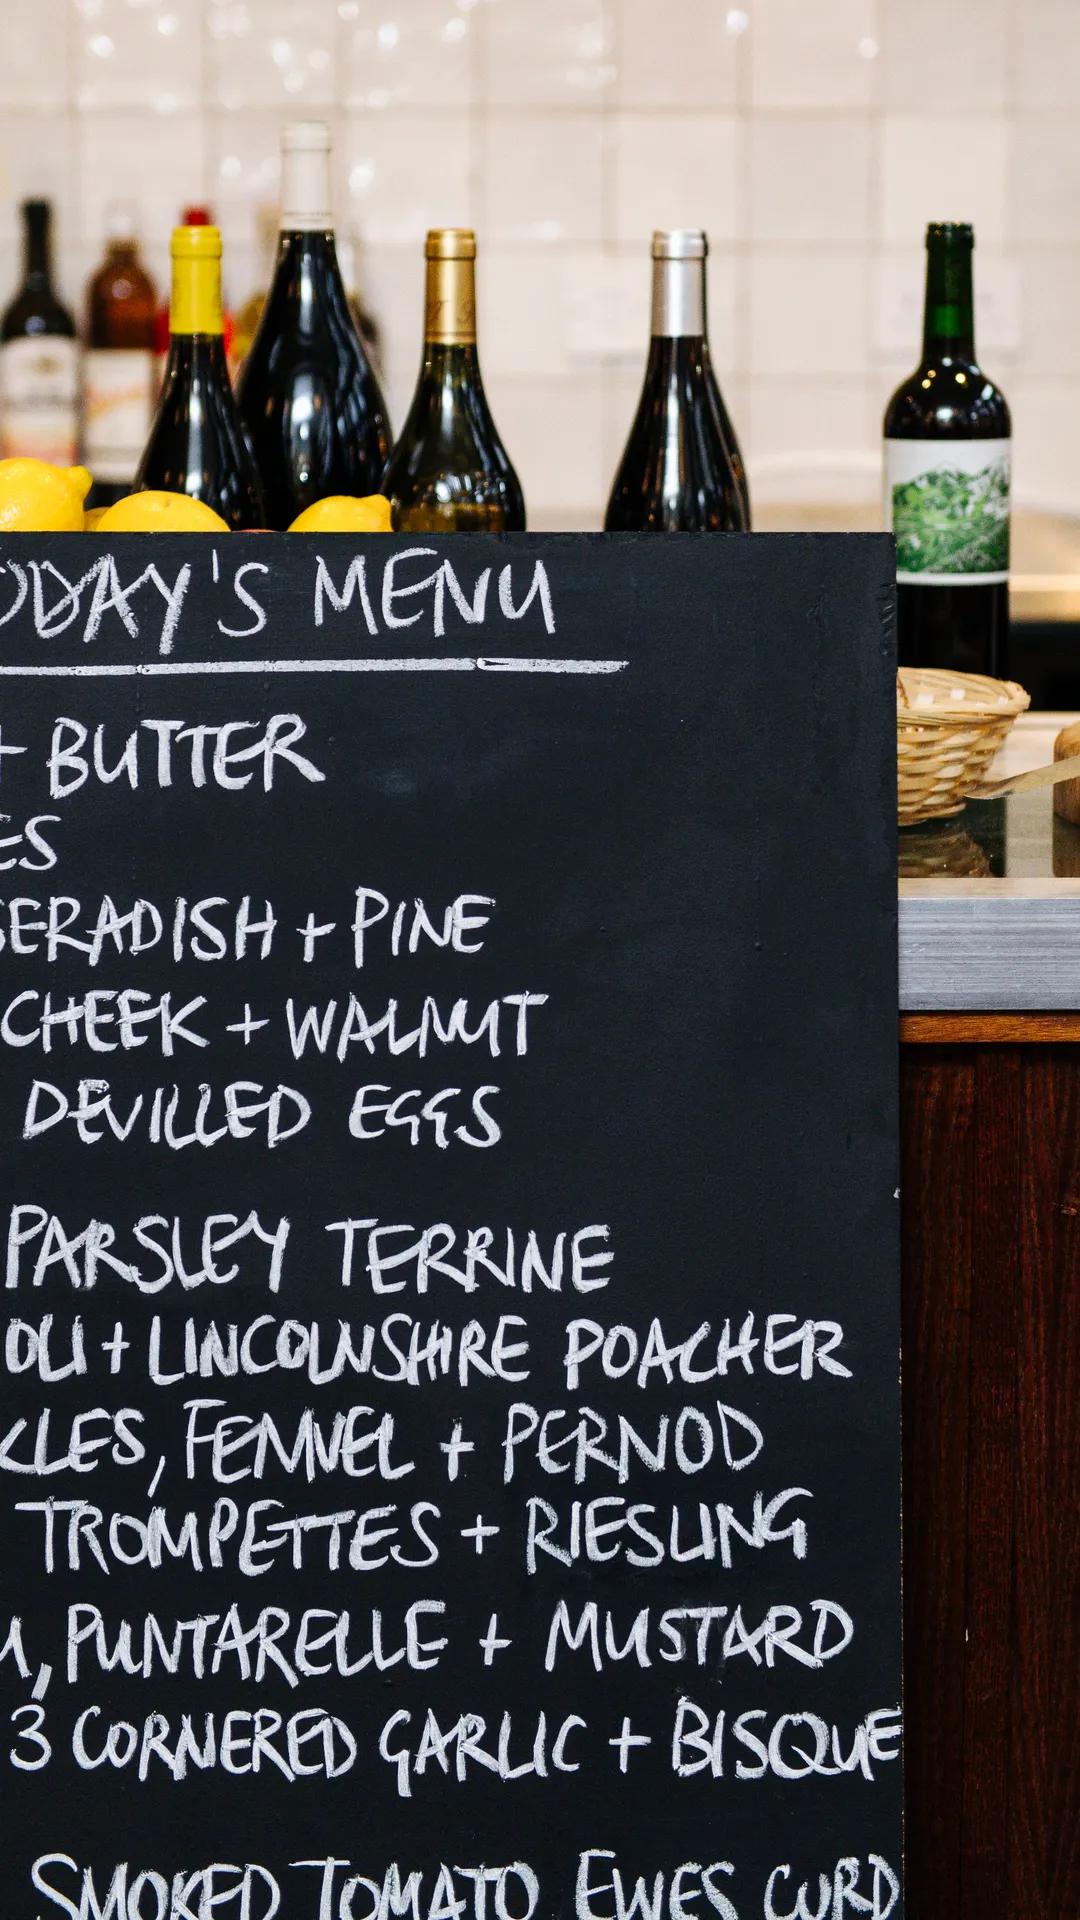 ODAY'S MENU
+ BUTTER
ES
SERADISH + PINE
CHEEK + WALNUT
DEVILLED EGGS
PARSLEY TERRINE
OLI + LINCOLNSHIRE POACHER
KLES, FENNEL + PERNOD
TROMPETTES + RIESLING
, PUNTARELLE + MUSTARD
3 CORNERED GARLIC + BISQUE
SMOKED TOMATO EWES CURD